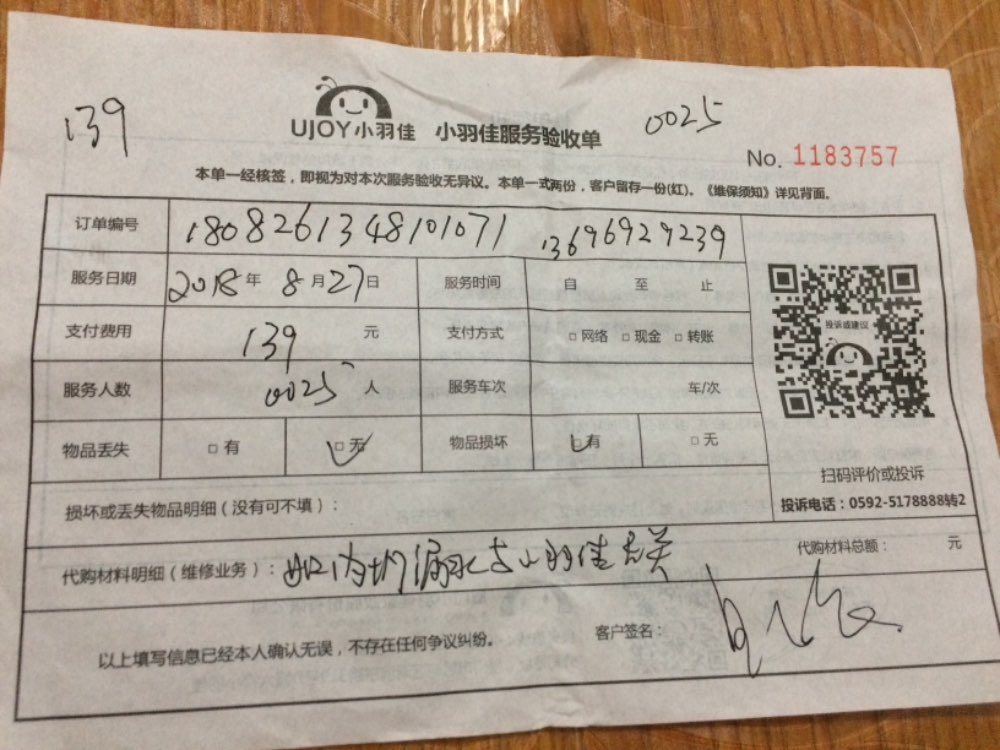 139
0025
UJOY小羽佳 小羽佳服务验收单
No. 1183757
本单一经核签，即视为对本次服务验收无异议。本单一式两份，客户留存一份(红)。《维保须知》详见背面。
订单编号 1808261348101071 13696929239
服务日期 2018年 8月27日 服务时间 自 至 止
支付费用 139 元 支付方式 □网络 □现金 □转账
服务人数 0025 人 服务车次 车/次
物品丢失 □有 □无 物品损坏 □有 □无
投诉或建议
扫码评价或投诉
投诉电话：0592-5178888转2
损坏或丢失物品明细（没有可不填）：
代购材料明细（维修业务）： 内 漏水与小羽佳无关
代购材料总额： 元
以上填写信息已经本人确认无误，不存在任何争议纠纷。
客户签名：